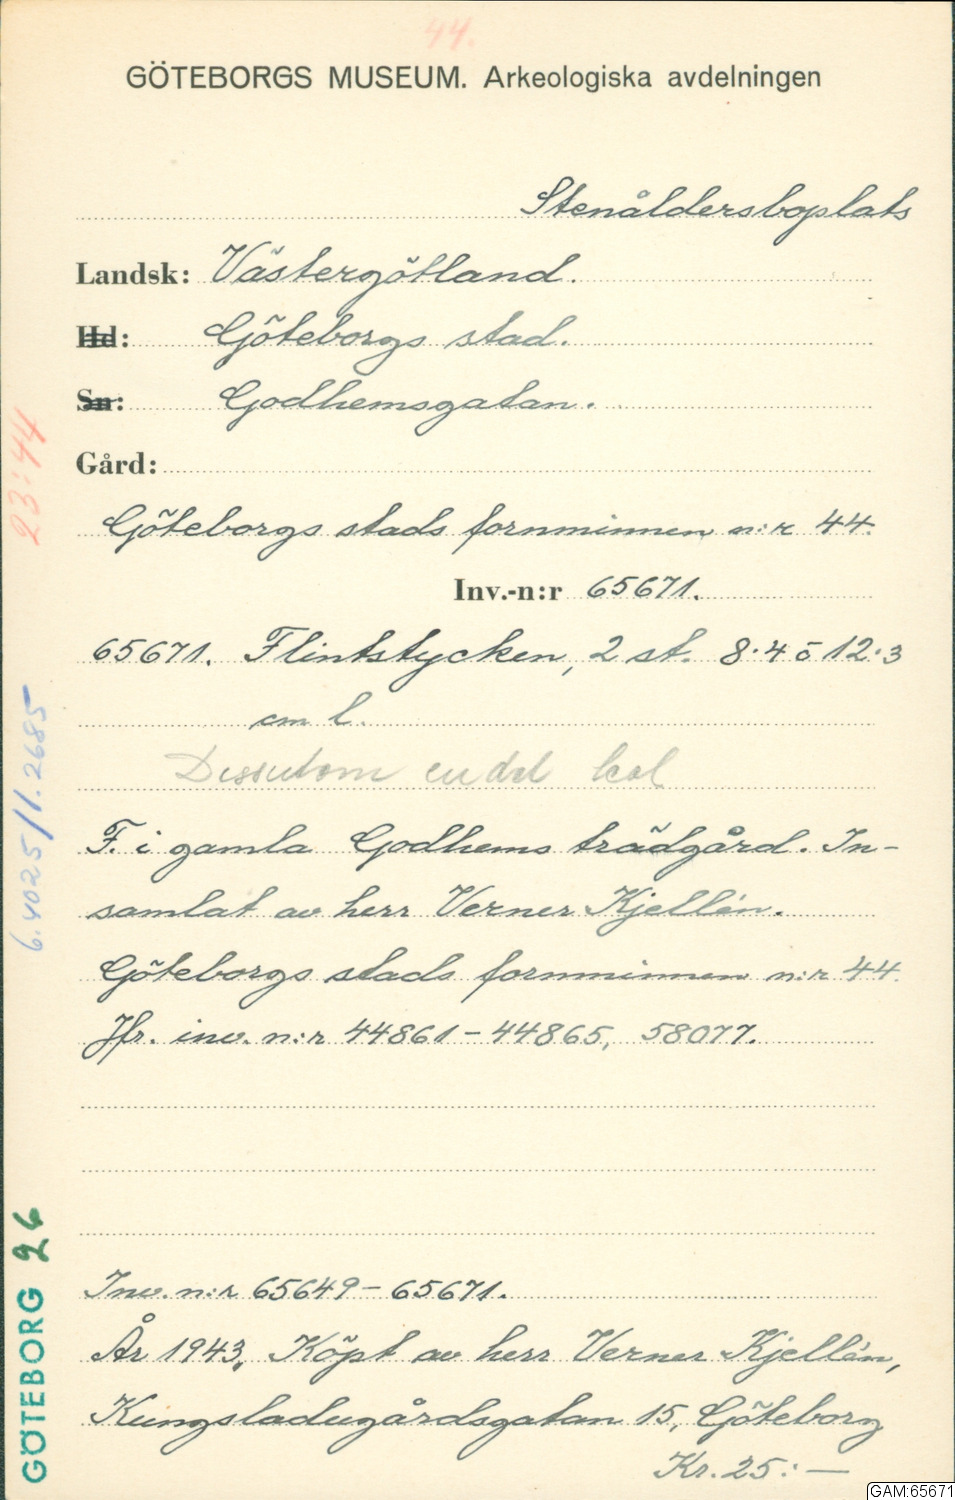 44.
GÖTEBORGS MUSEUM. Arkeologiska avdelningen
Stenåldersboplats
Landsk: Västergötland.
Hd: Göteborgs stad.
Sn: Godhemsgatan.
Gård:
Göteborgs stads fornminnen n:r 44.
Inv.-n:r 65671.
65671. Flintstycken, 2 st. 8.4 o 12.3
cm l.
Dessutom en del kol
F. i gamla Godhems trädgård. In-
samlat av herr Verner Kjellén.
Göteborgs stads fornminnen n:r 44.
Jfr. inv. n:r 44861-44865, 58077.
Inv. n:r 65649-65671.
År 1943, Köpt av herr Verner Kjellén,
Kungsladugårdsgatan 15, Göteborg
Kr. 25:-
23:44
6.4025/1.2685
GÖTEBORG 26
GAM:65671